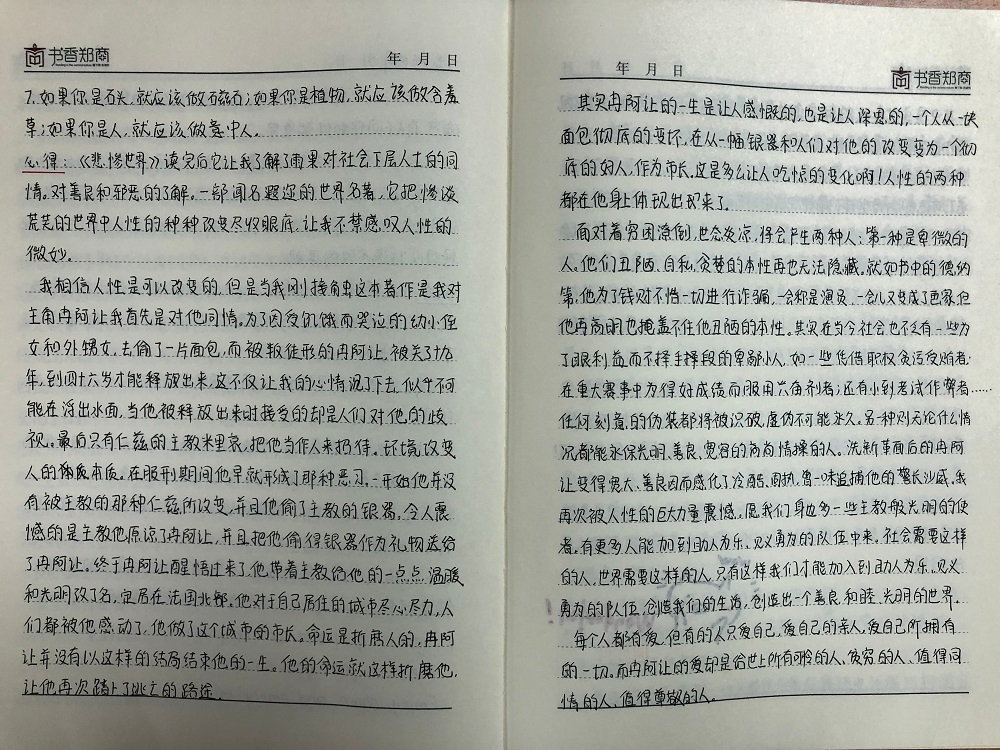 书香郑商
年 月 日
7.如果你是石头,就应该做磁石;如果你是植物,就应该做含羞
草;如果你是人,就应该做意中人。
心得:《悲惨世界》读完后它让我了解了雨果对社会下层人士的同
情。对善良和邪恶的了解。一部闻名遐迩的世界名著,它把惨淡
荒芜的世界中人性的种种改变尽收眼底,让我不禁感叹人性的
微妙。
我相信人性是可以改变的,但是当我刚接触这本著作是我对
主角冉阿让我首先是对他同情。为了因受饥饿而哭泣的幼小侄
女和外甥女,去偷了一片面包,而被叛徒形的冉阿让,被关了十九
年,到四十六岁才能释放出来,这不仅让我的心情沉了下去,似乎不可
能在浮出水面,当他被释放出来时接受的却是人们对他的歧
视。最后只有仁兹的主教米里哀,把他当作人来扔待。环境改变
人的本质。在服刑期间他早就形成了那种恶习,一开始他并没
有被主教的那种仁兹所改变,并且他偷了主教的银器,令人震
憾的是主教他原谅了冉阿让,并且把他偷得银器作为礼物送给
了冉阿让。终于冉阿让醒悟过来了,他带着主教给他的一点点温暖
和光明改了名,定居在法国北部。他对于自己居住的城市尽心尽力,人
们都被他感动了,他做了这个城市的市长。命运是折磨人的,冉阿
让并没有以这样的结局结束他的一生。他的命运就这样折磨他,
让他再次踏上了逃亡的路途。
年 月 日
书香郑商
其实冉阿让的一生是让人感慨的,也是让人深思的,一个人从一块
面包彻底的变坏,在从一幅银器和人们对他的改变变为一个彻
底的好人,作为市长,这是多么让人吃惊的变化啊!人性的两种
都在他身上体现出来了。
面对着穷困潦倒,世态炎凉,将会产生两种人:第一种是卑微的
人。他们丑陋、自私,贪婪的本性再也无法隐藏。就如书中的德纳
第,他为了钱财不惜一切进行诈骗,一会称是演员,一会儿又变成了画家,但
他再高明也掩盖不住他丑陋的本性。其实在当今社会也不乏有一些为
了眼利益而不择手段的卑鄙小人,如一些凭借职权贪污受贿者:
在重大赛事中为得好成绩而服用六角剂者;还有小到考试作弊者……
任何刻意的伪装都将被识破,虚伪不可能永久。另一种则无论什么情
况都能永保光明、善良、宽容的高尚情操的人。洗新革面后的冉阿
让变得宽大、善良因而感化了冷酷、固执、曾一味追捕他的警长沙威。我
再次被人性的巨大力量震憾。愿我们身边多一些主教般光明的使
者,有更多人能加到助人为乐、见义勇为的队伍中来。社会需要这样
的人,世界需要这样的人,只有这样我们才能加入到助人为乐、见义
勇为的队伍,创造我们的生活,创造出一个善良和睦、光明的世界。
每个人都有爱,但有的人只爱自己,爱自己的亲人,爱自己所拥有
的一切。而冉阿让的爱却是给世上所有可怜的人、贫穷的人、值得同
情的人、值得尊敬的人。